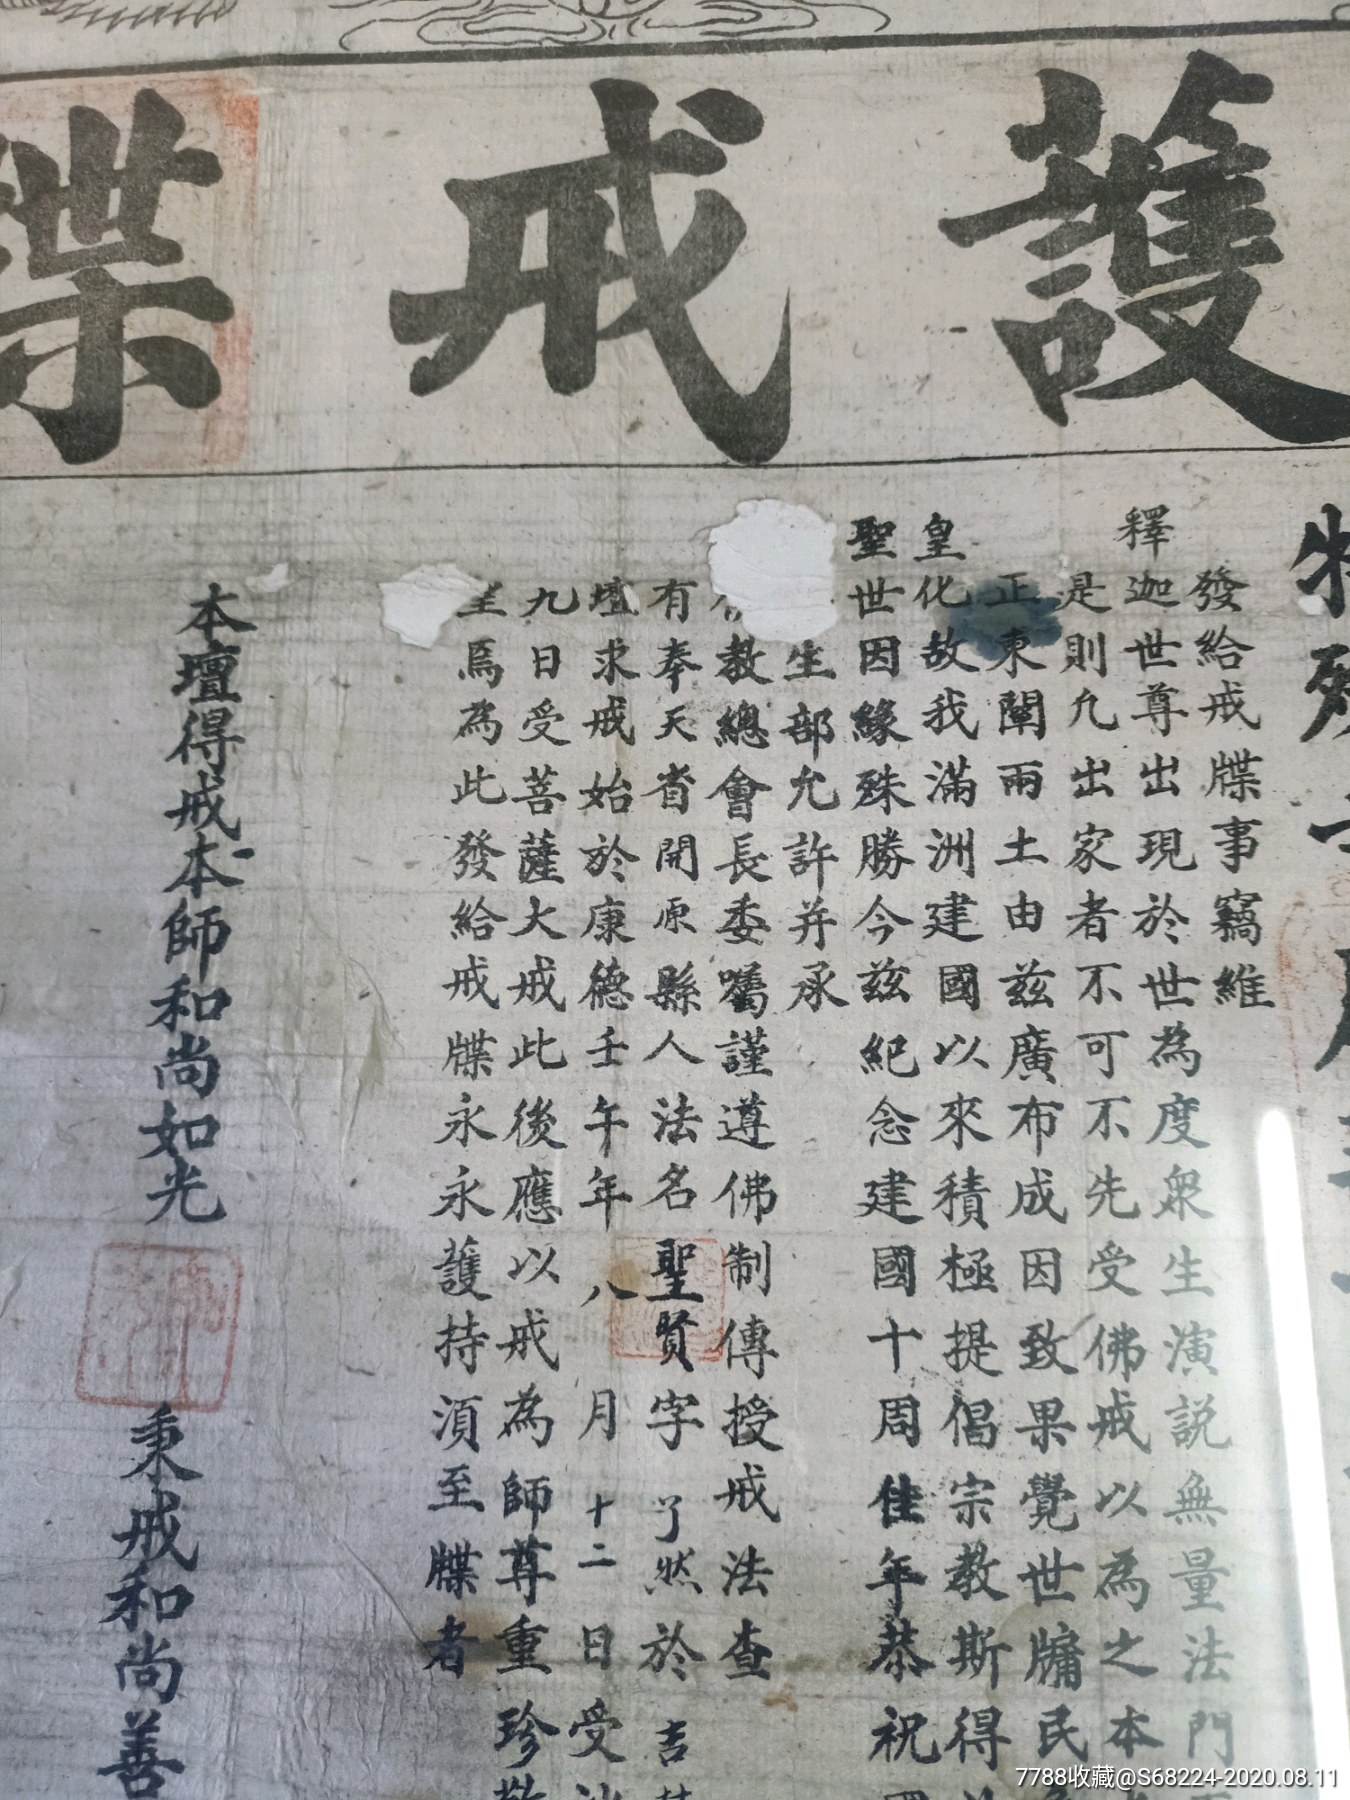 護戒牒
發給戒牒事竊維
釋迦世尊出現於世為度眾生演説無量法門
是則凡出家者不可不先受佛戒以為之本
正東闡兩土由兹廣布成因致果覺世牖民
皇化故我滿洲建國以來積極提倡宗教斯得
聖世因緣殊勝今兹紀念建國十周佳年恭祝
生部允許并承
教總會長委囑謹遵佛制傳授戒法查
有奉天省開原縣人法名聖賢字了然於吉
壇求戒始於康德壬午年八月十二日受沙
九日受菩薩大戒此後應以戒為師尊重珍敬
焉為此發給戒牒永永護持須至牒者
本壇得戒本師和尚如光
秉戒和尚善
7788收藏@S68224-2020.08.11